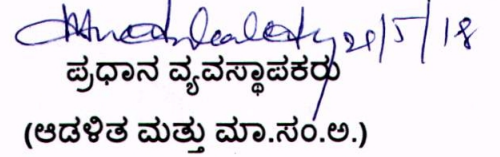 28/5/18
ಪ್ರಧಾನ ವ್ಯವಸ್ಥಾಪಕರು
(ಆಡಳಿತ ಮತ್ತು ಮಾ.ಸಂ.ಅ.)